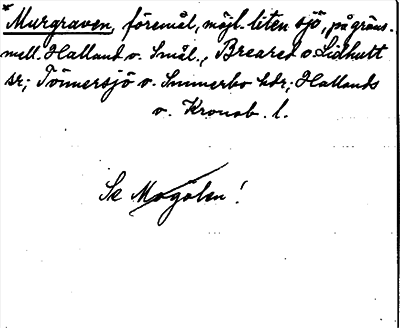 *Murgraven, föremål, möjl. liten sjö, på gräns.
mell. Halland o. Smål., Breared o. Lidhult
sr; Tönnersjö o. Sunnerbo hdr; Hallands
o. Kronob. l.
Se Mogölen!